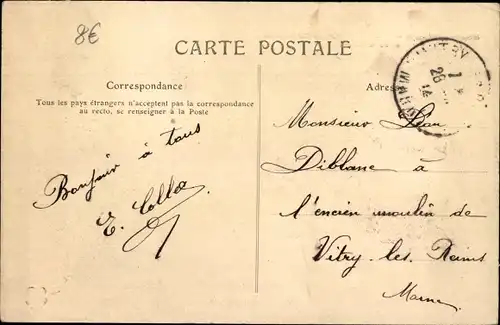 8€
CARTE POSTALE
Correspondance
Tous les pays étrangers n'acceptent pas la correspondance
au recto, se renseigner à la Poste
Bonjour à tous
E. Colla
Adres
VITRY
Monsieur
Diblanc à
l'encien moulin de
Vitry-les-Reims
Marne